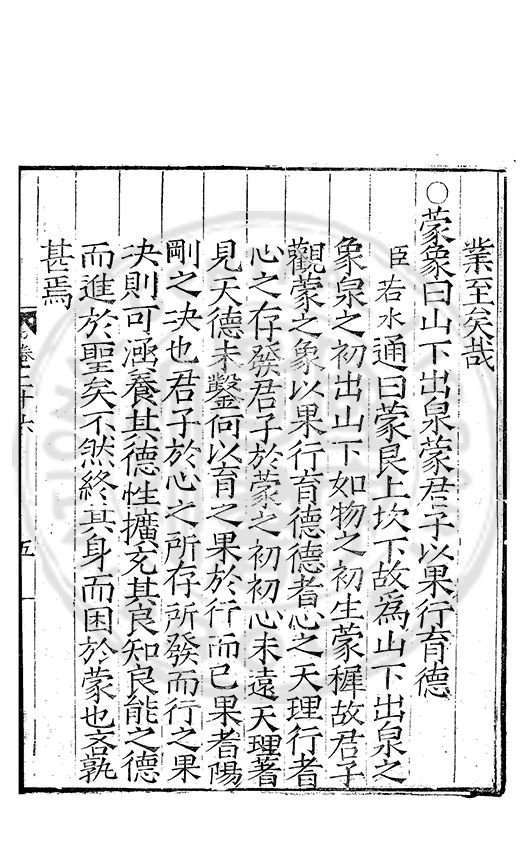 業至矣哉
○蒙象曰山下出泉蒙君子以果行育德
臣若水通曰蒙艮上坎下故爲山下出泉之
象泉之初出山下如物之初生蒙穉故君子
觀蒙之象以果行育德德者心之天理行者
心之存發君子於蒙之初初心未遠天理著
見天德未鑿何以育之果於行而已果者陽
剛之决也君子於心之所存所發而行之果
决則可涵養其德性擴充其良知良能之德
而進於聖矣不然終其身而困於蒙也吝孰
甚焉
卷二十六
五